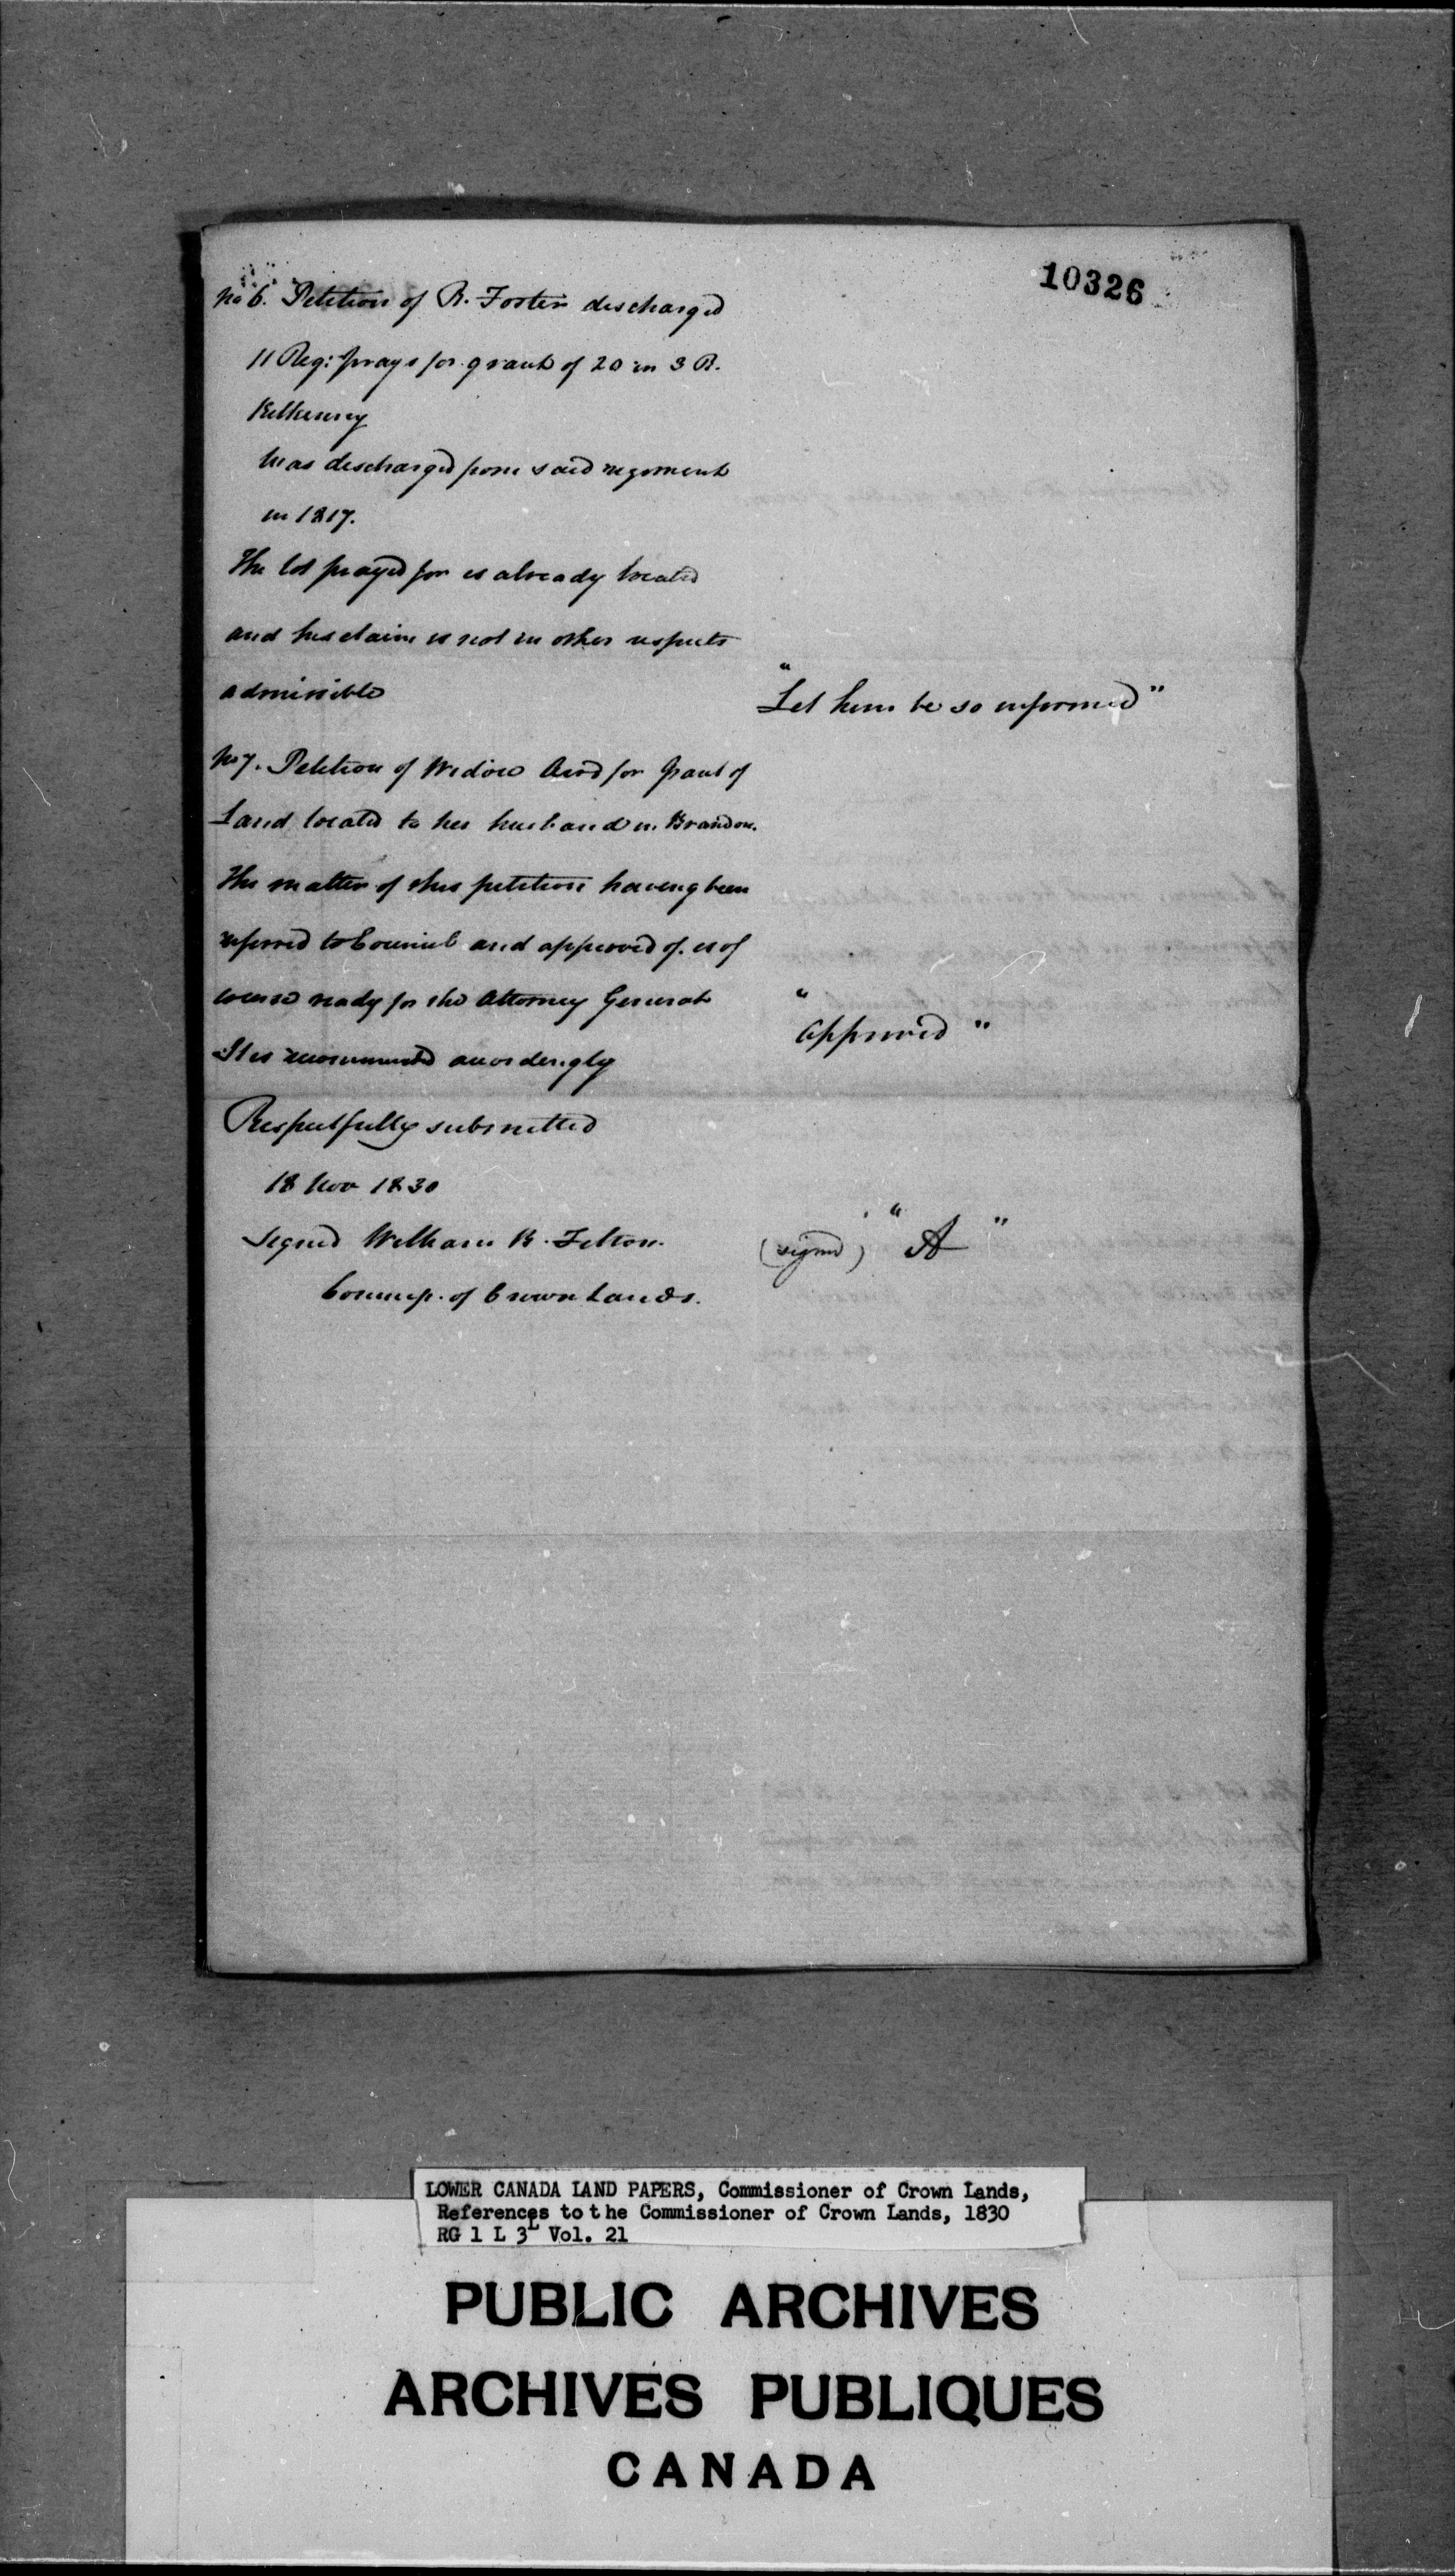 10326
No 6. Petition of R. Foster discharged
11 Reg: prays for grant of 20 in 3 R.
Kilkenny
Was discharged from said regiment
in 1817.
The lot prayed for is already located
and his claim is not in other respects
admissible
"Let him be so informed"
No 7. Petition of Widow Aird for Grant of
Land located to her husband in Brandon.
The matter of this petition having been
referred to Council and approved of. is of
course ready for the Attorney General
It is recommended accordingly
"Approved"
Respectfully submitted
18 Nov 1830
Signed William B. Felton.
(signed) "A"
Commis. of Crown Lands.
LOWER CANADA LAND PAPERS, Commissioner of Crown Lands,
References to the Commissioner of Crown Lands, 1830
RG 1 L 3L Vol. 21
PUBLIC ARCHIVES
ARCHIVES PUBLIQUES
CANADA